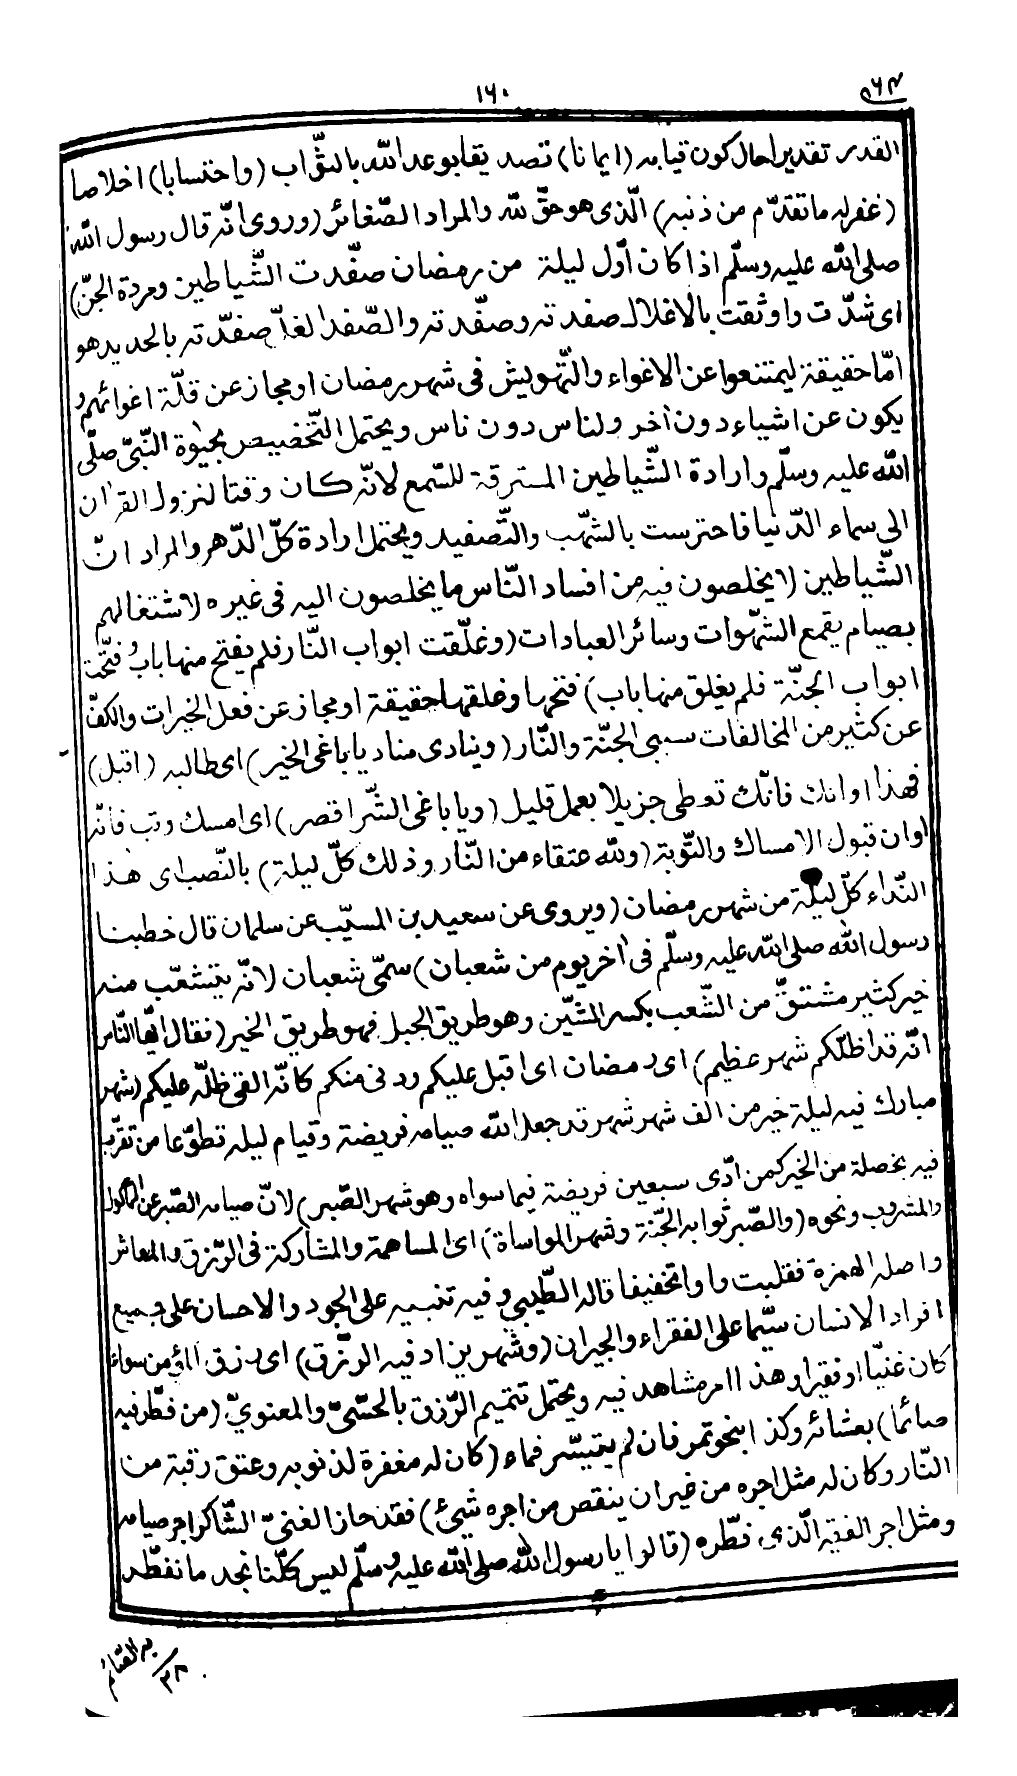 ١٦٠
القدر تقدير احال كون قيامه (ايمانا) تصديقا بوعد الله بالثّواب (واحتسابا) اخلاصا
(غفر له ما تقدّم من ذنبه) الّذى هو حقّ لله والمراد الصّغائر (وروى انّه قال رسول الله
صلى الله عليه وسلّم اذا كان أوّل ليلة من رمضان صفّدت الشّياطين ومردة الجنّ)
اى شدّت واوثقت بالاغلال صفدته وصفّدته والصّفد الغلّ صفدّته بالحديد هو
امّا حقيقة ليمتنعوا عن الاغواء والتّهويش فى شهر رمضان او مجاز عن قلّة اغوائهم و
يكون عن اشياء دون أخر ولناس دون ناس ويحتمل التّخصيص بحيوة النّبىّ صلّى
الله عليه وسلّم وارادة الشّياطين المسترقة للسّمع لانّه كان وقتا لنزول القرآن
الى سماء الدّنيا فاحترست بالشّهب والتّصفيد ويحتمل ارادة كلّ الدّهر والمراد انّ
الشّياطين لا يخلصون فيه من افساد النّاس ما يخلصون اليه فى غيره لاشتغالهم
بصيام يقمع الشّهوات وسائر العبادات (وغلّقت ابواب النّار فلم يفتح منها بابٌ فتّحت
ابواب الجنّة فلم يغلق منها باب) فتحها وغلقها حقيقة او مجاز عن فعل الخيرات والكفّ
عن كثير من المخالفات سببى الجنّة والنّار (وينادى مناد يا باغى الخير) اى طالبه (اقبل)
فهذا اوانك فانّك تعطى جزيلا بعمل قليل (ويا باغى الشّر اقصر) اى امسك وتب فانّه
اوان قبول الامساك والتّوبة (ولله عتقاء من النّار وذلك كلّ ليلة) بالنّصب اى هذا
النّداء كلّ ليلة من شهر رمضان (ويروى عن سعيد بن المسيّب عن سلمان قال خطبنا
رسول الله صلى الله عليه وسلّم فى أخر يوم من شعبان) سمّى شعبان لانّه يتشعّب منه
خير كثير مشتقّ من الشّعب بكسر الشّين وهو طريق الجبل فهو طريق الخير (فقال ايّها النّاس
انّه قد اظلّكم شهر عظيم) اى رمضان اى اقبل عليكم ودنى منكم كانّه القى ظلّه عليكم (شهر
مبارك فيه ليلة خير من الف شهر شهر قد جعل الله صيامه فريضة وقيام ليله تطوّعا من تقرّب
فيه بخصلة من الخير كمن ادّى سبعين فريضة فيما سواه وهو شهر الصّبر) لانّ صيامه الصّبر عن المأكول
والمشروب ونحوه (والصّبر ثوابه الجنّة وشهر المواساة) اى المساهمة والمشاركة فى الرّزق والمعاش
واصله الهمزة فقلبت واوا تخفيفا قاله الطّيبي وفيه تنبيه على الجود والاحسان على جميع
افراد الانسان سيّما على الفقراء والجيران (وشهر يزاد فيه الرّزق) اى رزق المؤمن سواء
كان غنيّا او فقيرا وهذا امر مشاهد فيه ويحتمل تتميم الرّزق بالحسّىّ والمعنوىّ (من فطّر فيه
صائما) بعشائه وكذا بنحو تمر فان لم يتيسّر فماء (كان له مغفرة لذنوبه وعتق رقبة من
النّار وكان له مثل اجره من غير ان ينقص من اجره شيئ) فقد حاز الغنىّ الشّاكر اجر صيامه
ومثل اجر الفقير الّذى فطّره (قالوا يا رسول الله صلى الله عليه وسلّم ليس كلّنا نجد ما نفطّر
به القائم
٣٨